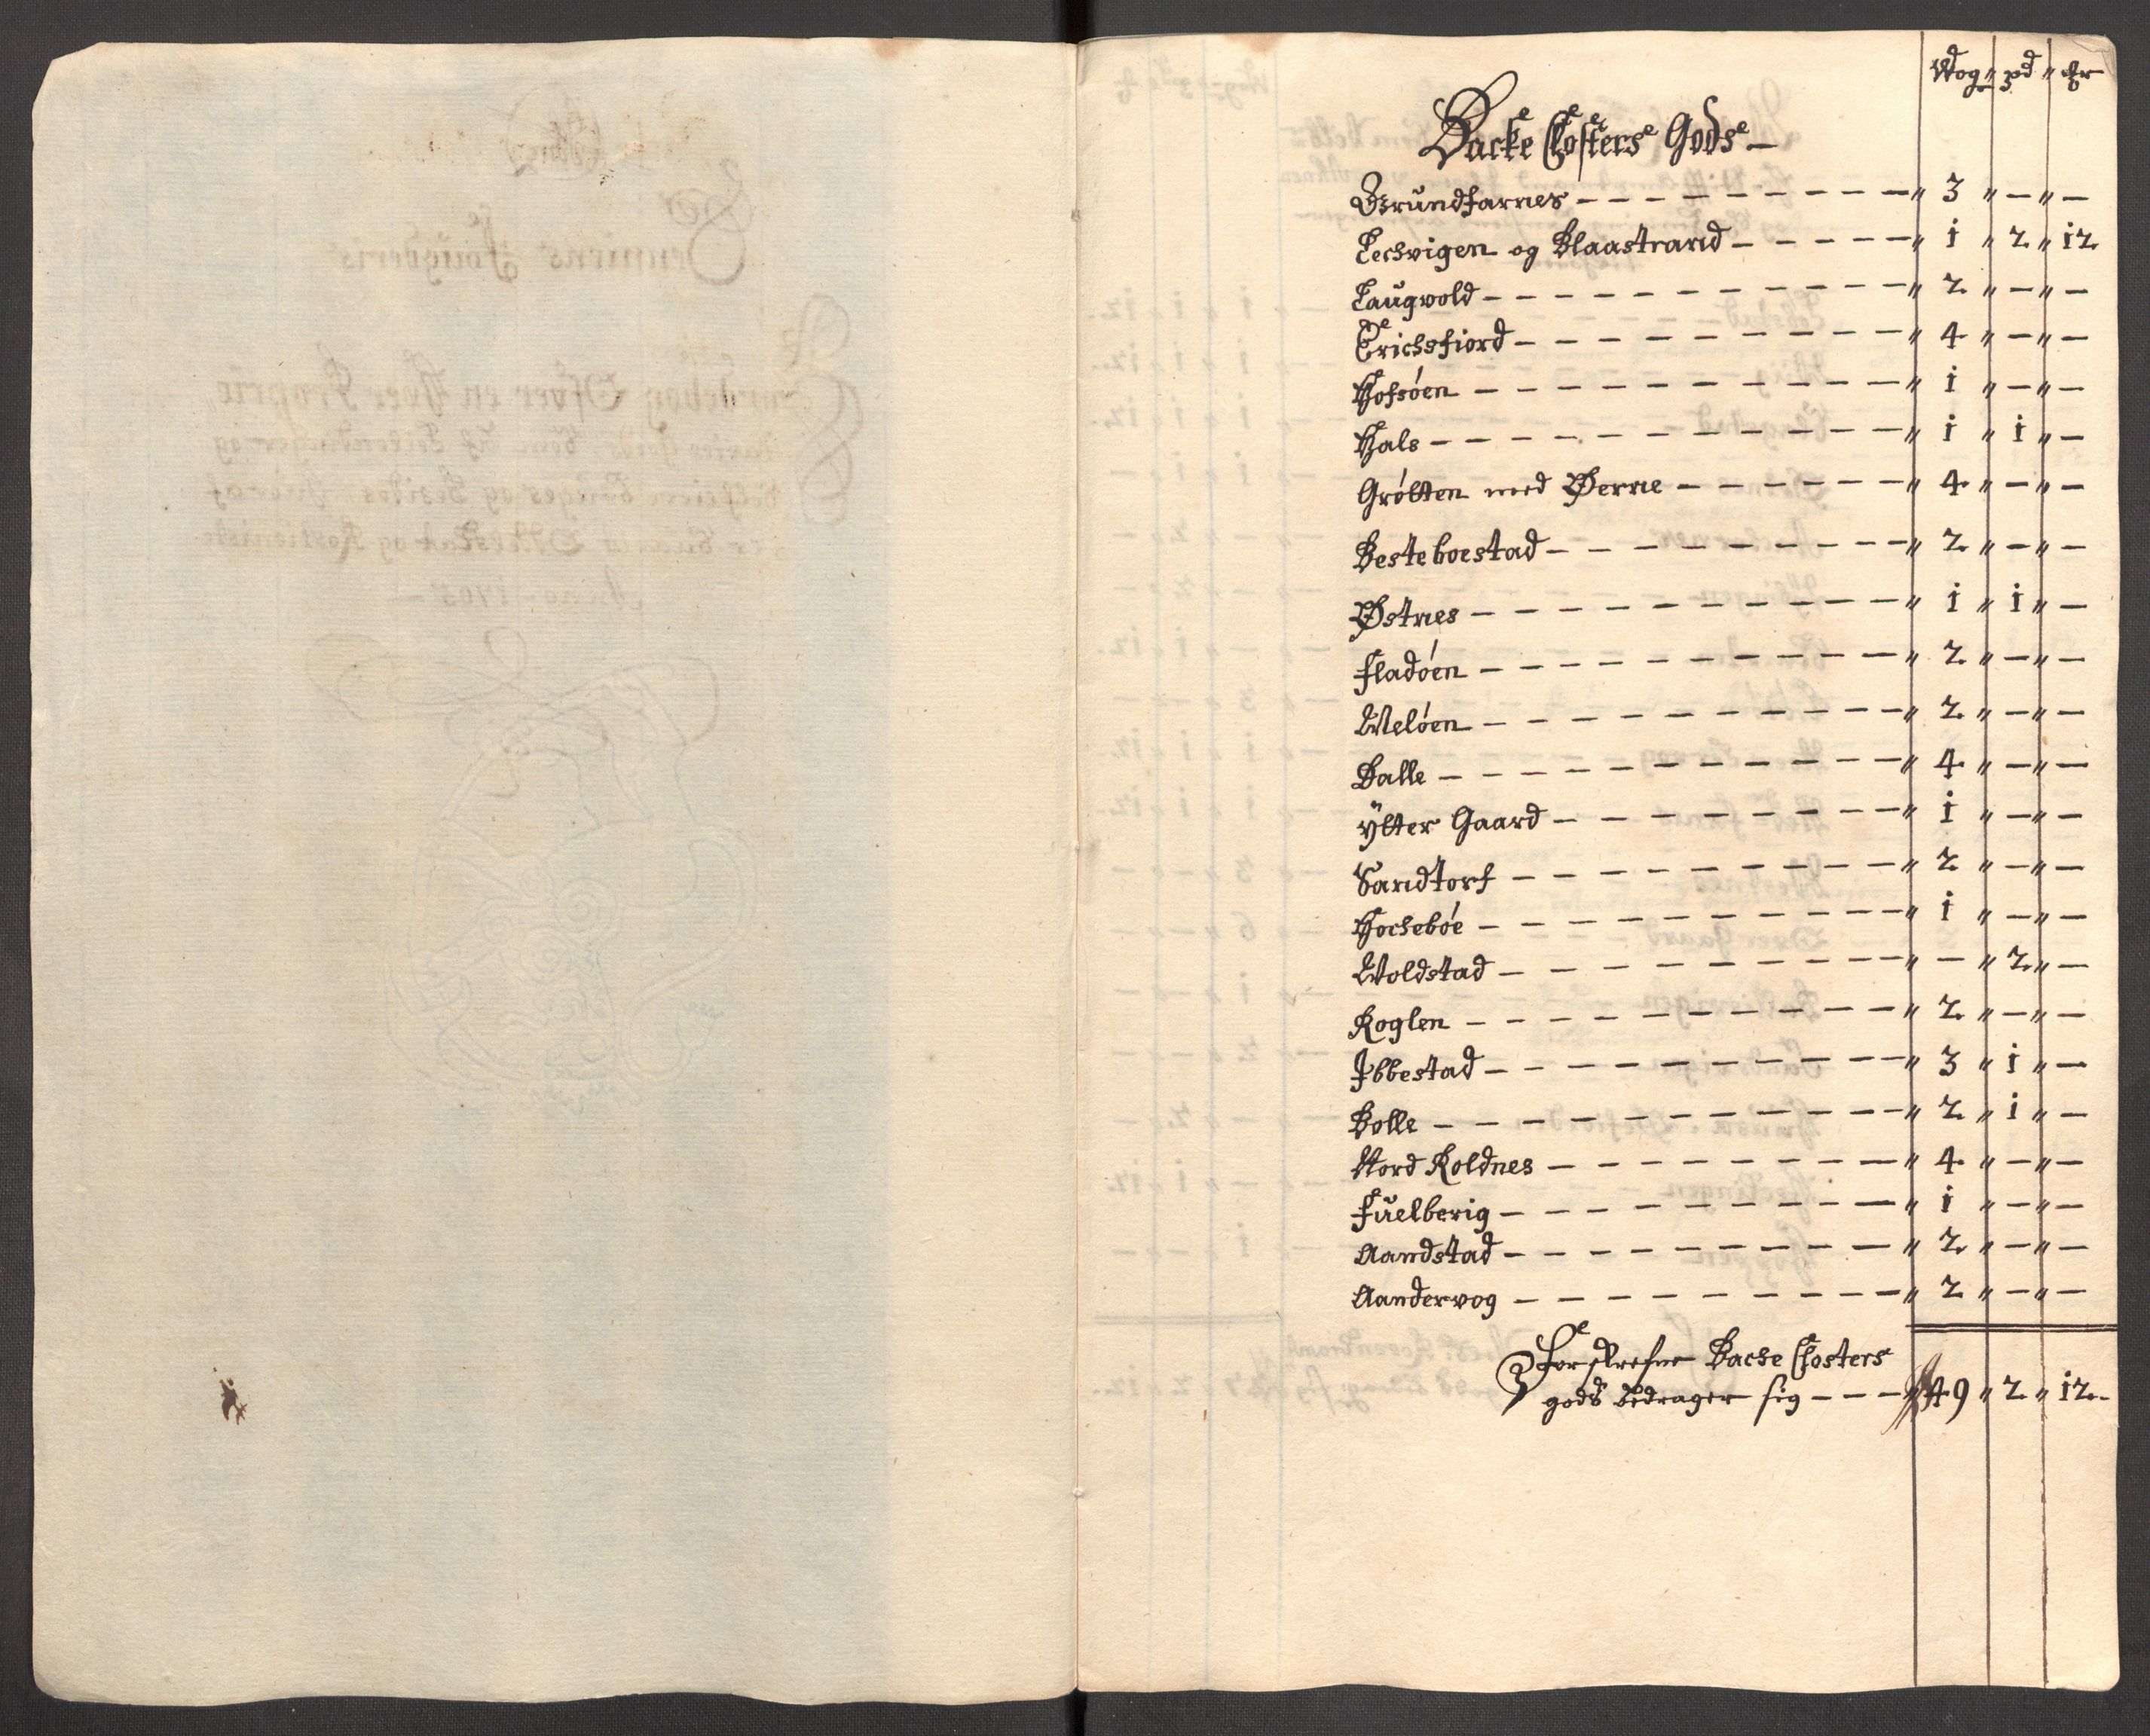 Wog " pd " mr
Backe Closters Gods —
Grundfarnes — — — — — — — — " 3 " — " —
Lechvigen og Blaastrand — — — — — " i " 2 " i2
Laugvold — — — — — — — — — — " 2 " — " —
Erichsfiord — — — — — — — — — " 4 " — " —
Hofsöen — — — — — — — — — — " i " — " —
Hals — — — — — — — — — — — " i " i " —
Grötten med Øerne — — — — — — " 4 " — " —
Besteboestad — — — — — — — — " 2 " — " —
Østnes — — — — — — — — — — " i " i " —
Fladöen — — — — — — — — — — " 2 " — " —
Melöen — — — — — — — — — — " 2 " — " —
Balle — — — — — — — — — — — " 4 " — " —
ÿtter Gaard — — — — — — — — " i " — " —
Sandtorf — — — — — — — — — " 2 " — " —
Hocheböe — — — — — — — — — — " i " — " —
Woldstad — — — — — — — — — " — " 2 " —
Roglen — — — — — — — — — — " 2 " — " —
Ibbestad — — — — — — — — — — " 3 " i " —
Bolle — — — — — — — — — — — " 2 " i " —
Nord Roldnes — — — — — — — — " 4 " — " —
Fuelberig — — — — — — — — — " i " — " —
Aandstad — — — — — — — — — " 2 " — " —
Aandervog — — — — — — — — — " 2 " — " —
Forskrefne Bache Closters
gods bedrager sig — — — " 49 " 2 " i2 —